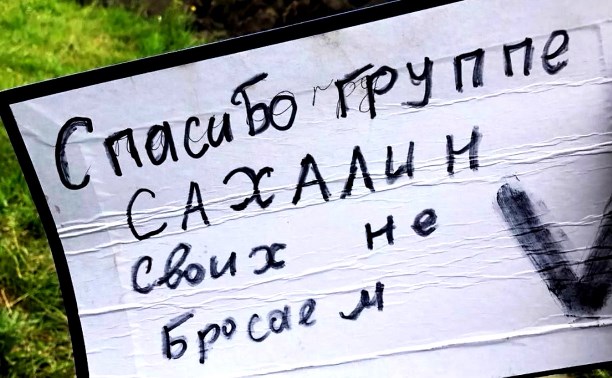 Спасибо группе
САХАЛИН
Своих не
Бросаем
V